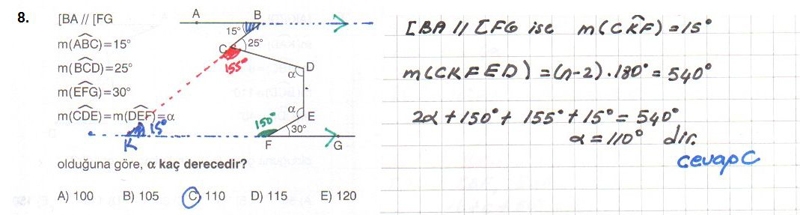 8. [BA // [FG
m(ABC)=15°
m(BCD)=25°
m(EFG)=30°
m(CDE)=m(DEF)=α
A B
15°
C 25°
155°
D
α
α
E
150°
30°
K 15°
F G
olduğuna göre, α kaç derecedir?
A) 100 B) 105 C) 110 D) 115 E) 120
[BA // [FG ise m(CKF)=15°
m(CKFED)=(n-2).180°=540°
2α+150°+155°+15°=540°
α=110° dir.
cevap C